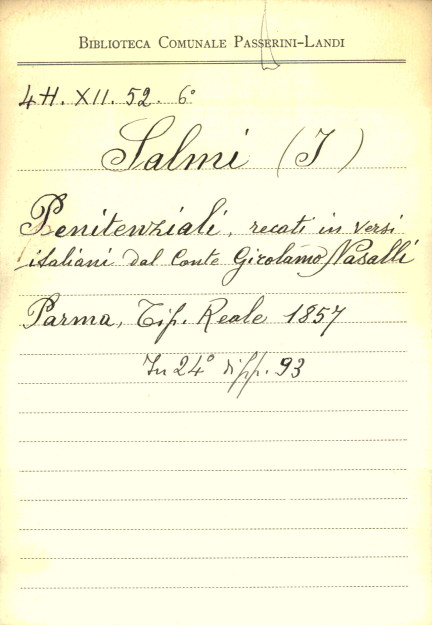 BIBLIOTECA COMUNALE PASSERINI-LANDI
4H. XII. 52. 6°
Salmi (I)
Penitenziali, recati in versi
italiani dal Conte Girolamo Nasalli
Parma, Tip. Reale 1857
In 24° di pp. 93